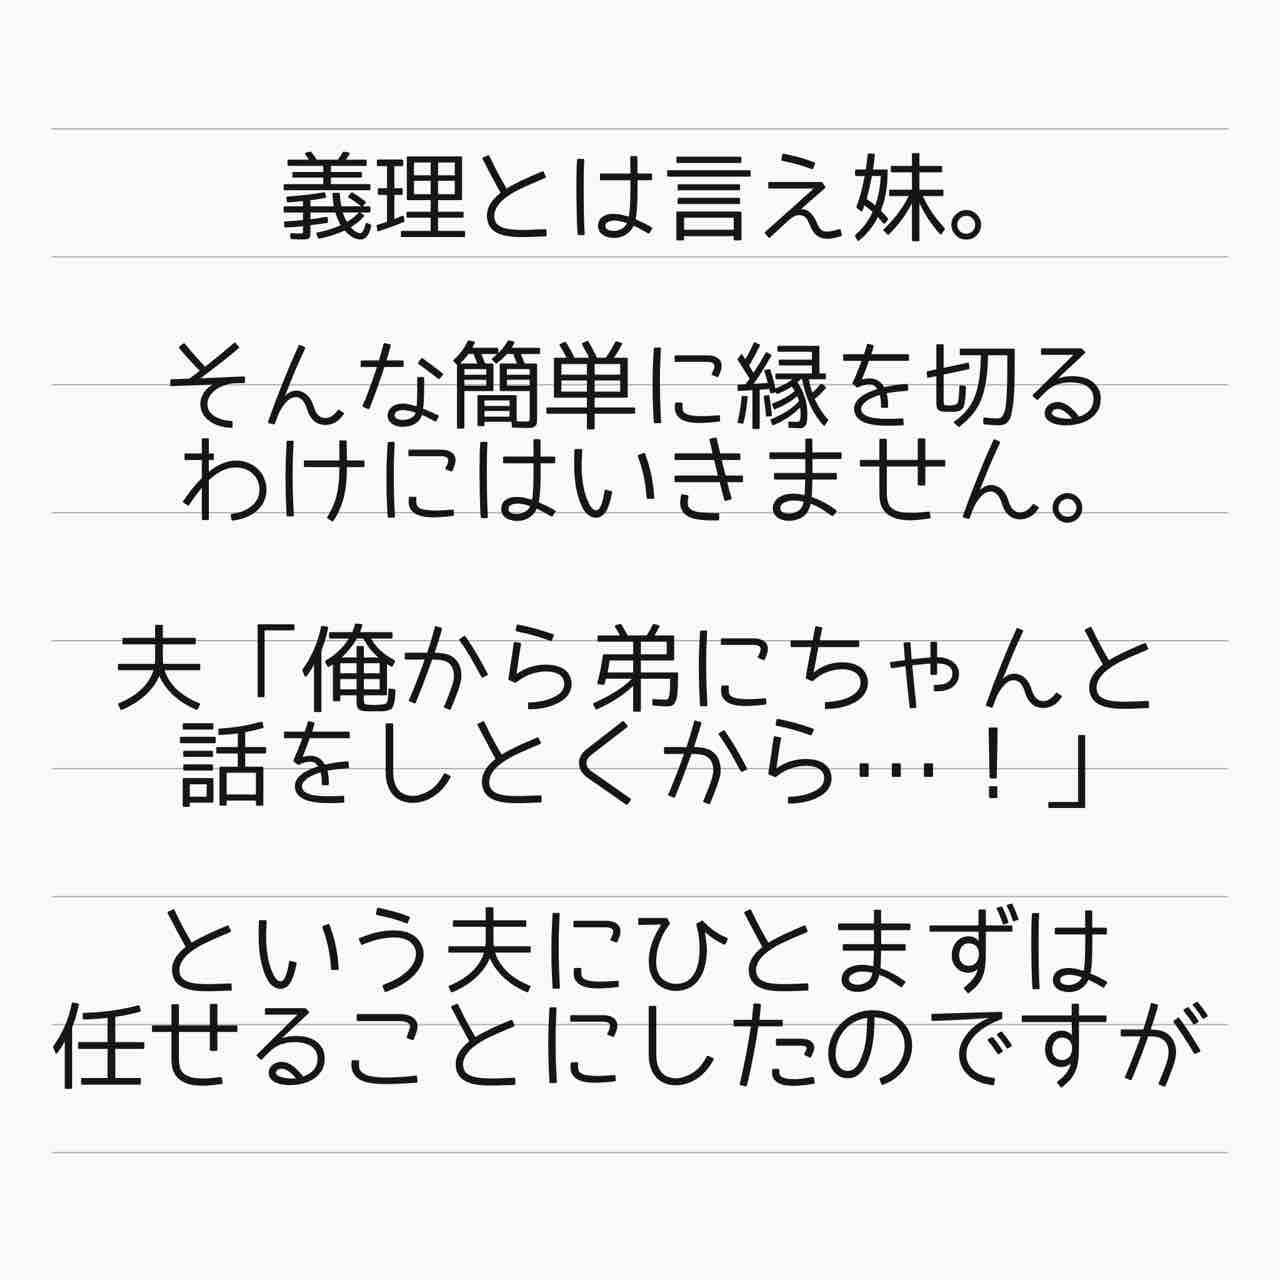 義理とは言え妹。
そんな簡単に縁を切る
わけにはいきません。
夫「俺から弟にちゃんと
話をしとくから…！」
という夫にひとまずは
任せることにしたのですが